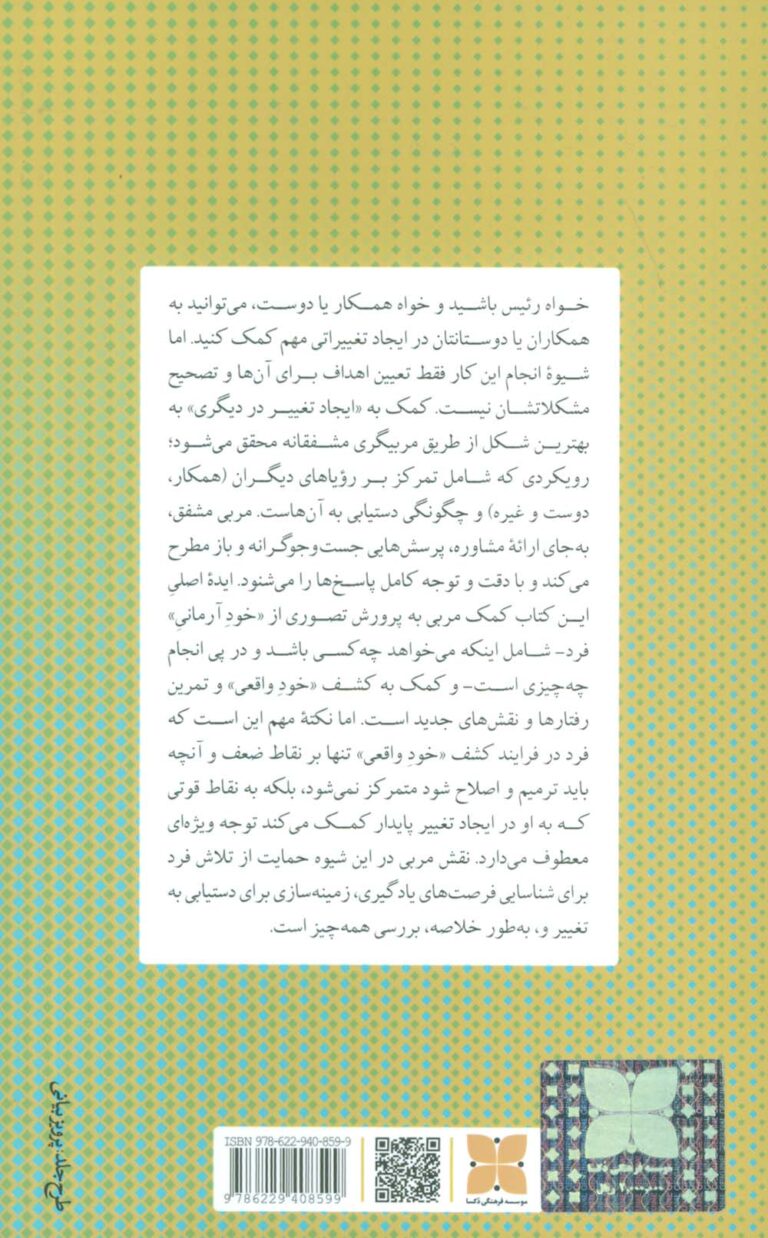 خواه رئیس باشید و خواه همکار یا دوست، می‌توانید به
همکاران یا دوستانتان در ایجاد تغییراتی مهم کمک کنید. اما
شیوهٔ انجام این کار فقط تعیین اهداف برای آن‌ها و تصحیح
مشکلاتشان نیست. کمک به «ایجاد تغییر در دیگری» به
بهترین شکل از طریق مربیگری مشفقانه محقق می‌شود؛
رویکردی که شامل تمرکز بر رؤیاهای دیگران (همکار،
دوست و غیره) و چگونگی دستیابی به آن‌هاست. مربی مشفق،
به‌جای ارائهٔ مشاوره، پرسش‌هایی جست‌وجوگرانه و باز مطرح
می‌کند و با دقت و توجه کامل پاسخ‌ها را می‌شنود. ایدهٔ اصلیِ
این کتاب کمک مربی به پرورش تصوری از «خودِ آرمانیِ»
فرد- شامل اینکه می‌خواهد چه‌کسی باشد و در پی انجام
چه‌چیزی است- و کمک به کشف «خودِ واقعی» و تمرین
رفتارها و نقش‌های جدید است. اما نکتهٔ مهم این است که
فرد در فرایند کشف «خودِ واقعی» تنها بر نقاط ضعف و آنچه
باید ترمیم و اصلاح شود متمرکز نمی‌شود، بلکه به نقاط قوتی
که به او در ایجاد تغییر پایدار کمک می‌کند توجه ویژه‌ای
معطوف می‌دارد. نقش مربی در این شیوه حمایت از تلاش فرد
برای شناسایی فرصت‌های یادگیری، زمینه‌سازی برای دستیابی به
تغییر و، به‌طور خلاصه، بررسی همه‌چیز است.
طرح جلد: پرویز بیانی
ISBN 978-622-940-859-9
9 786229 408599
موسسه فرهنگی دکسا